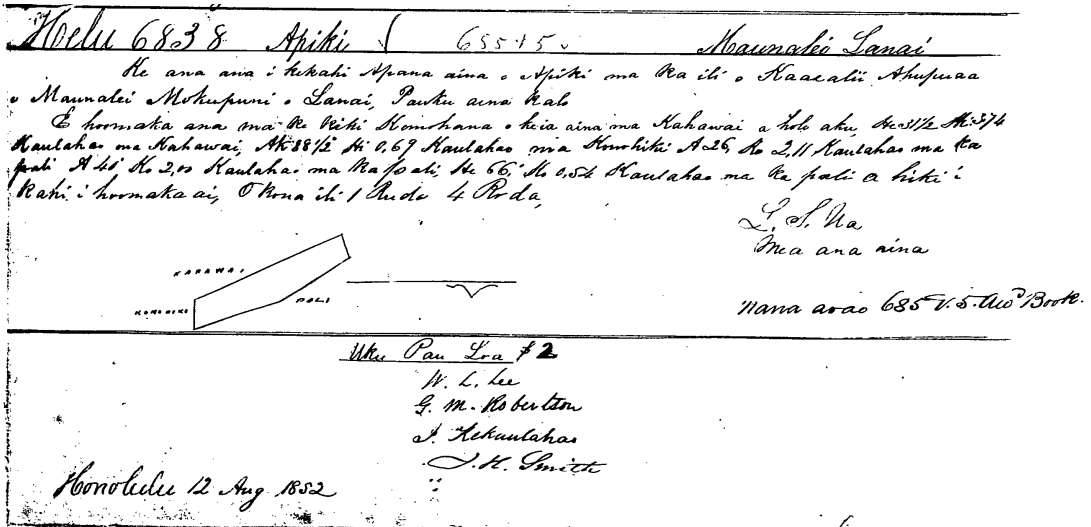 Helu 6838 Apiki 685 v 5 Maunalei Lanai
He ana ana i kekahi Apana aina o Apiki ma ka ili o Kaacalii Ahupuaa
o Maunalei Mokupuni o Lanai, Pauku aina kalo
E hoomaka ana ma ke kiki Komohana o keia aina ma Kahawai a holo aku, He 31 1/2 Hk 3,74
Kaulahao ma Kahawai, Ak 88 1/2 Hi 0,69 Kaulahao ma Konohiki A 26, Ko 2,11 Kaulahao ma ka
pali A 40, Ko 2,00 Kaulahao ma ka pali, He 66, Ko 0,54 Kaulahao ma ka pali a hiki i
kahi i hoomaka ai, O kona ili 1 Ruda 4 Roda,
L. S. Ua
Mea ana aina
KAHAWAI
KONOHIKI
PALI
Nana aoao 685 V. 5. Awd Book.
Uku Pau Loa $2
W. L. Lee
G. M. Robertson
J. Kekaulahao
J. H. Smith
Honolulu 12 Aug 1852